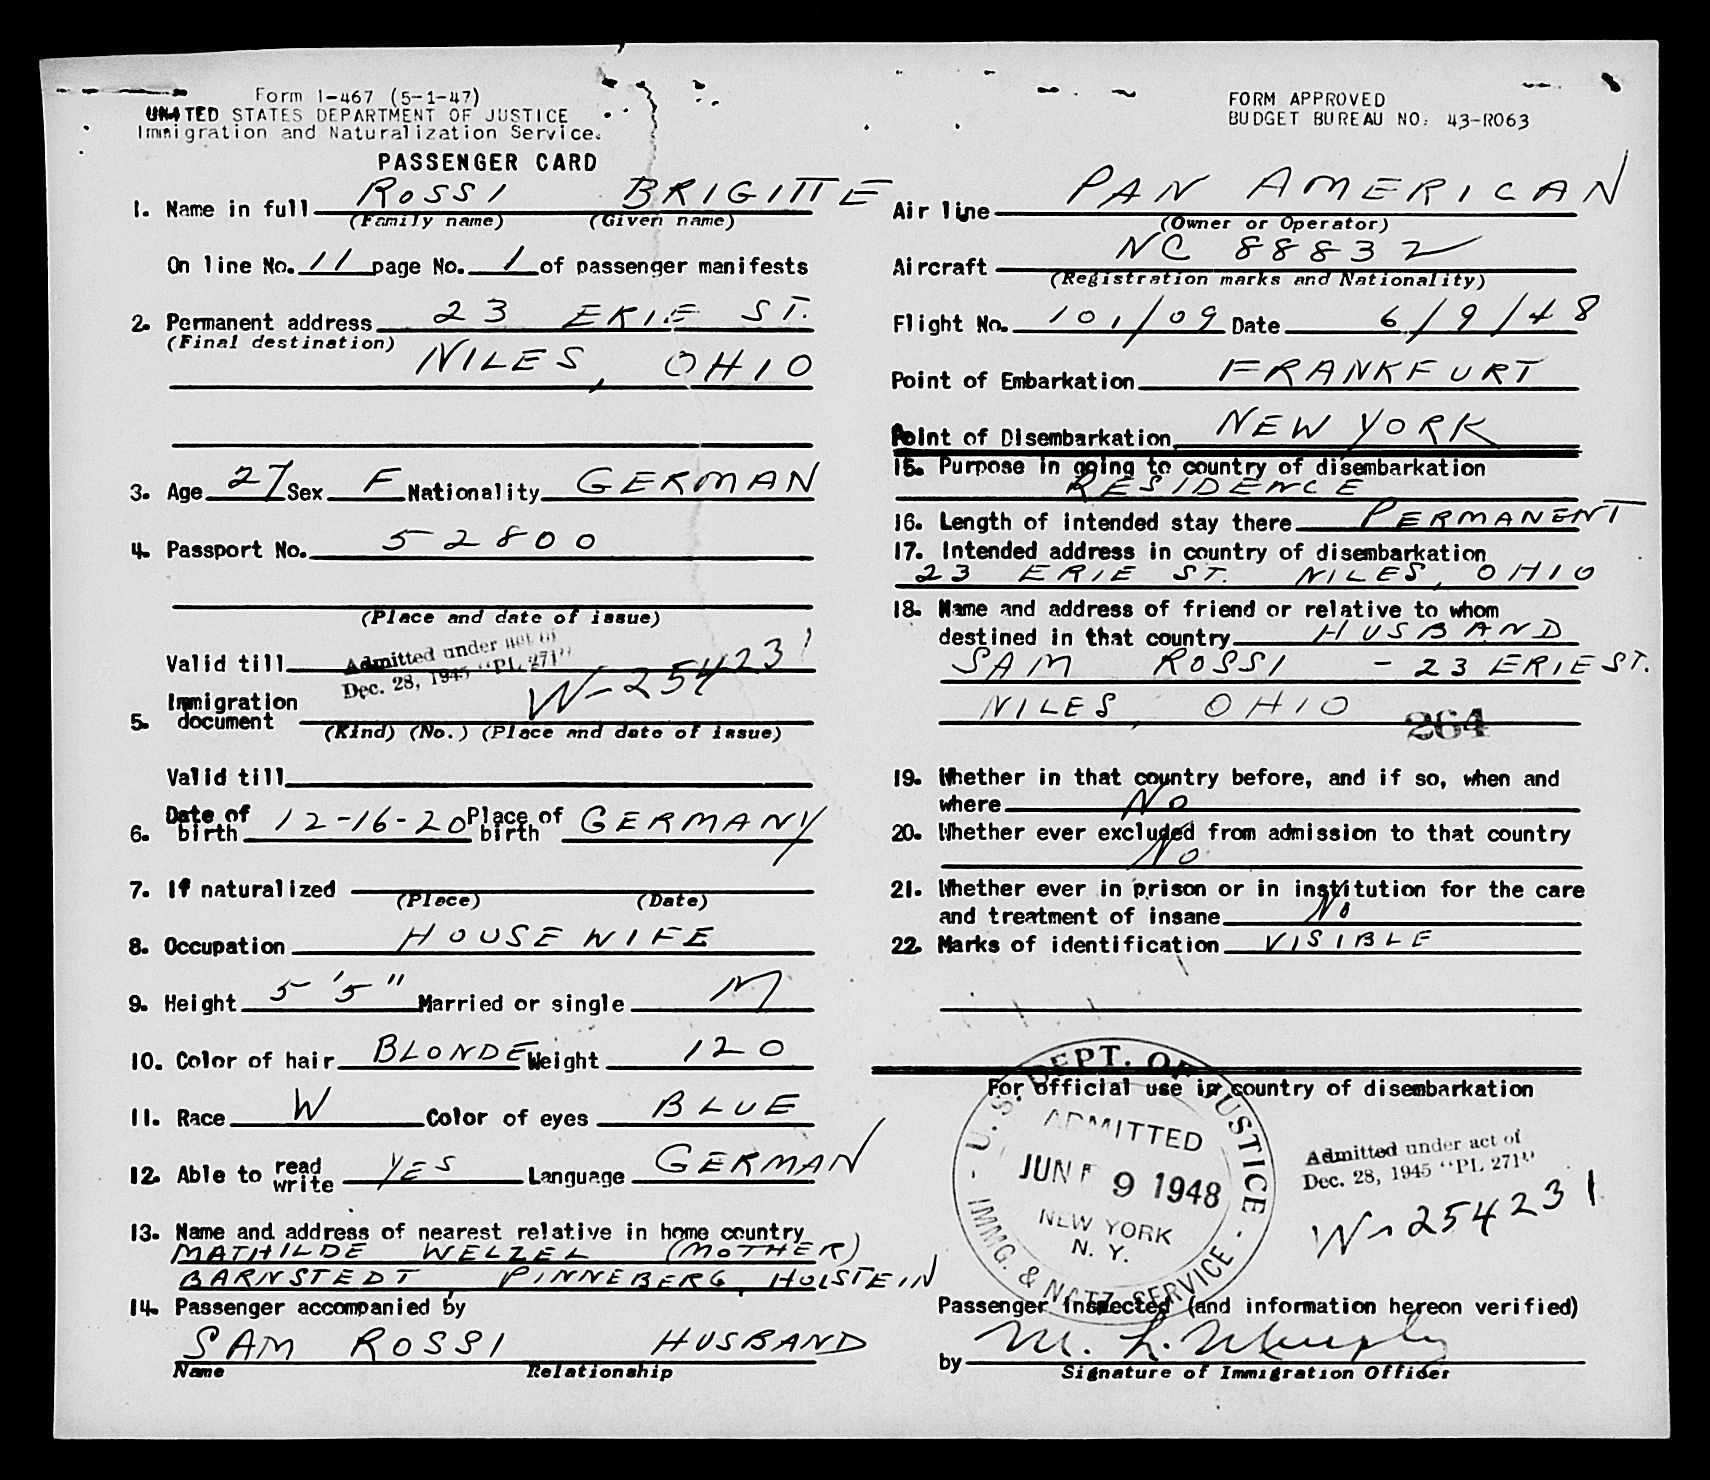 Form I-467 (5-1-47)
UNITED STATES DEPARTMENT OF JUSTICE
Immigration and Naturalization Service.
PASSENGER CARD
FORM APPROVED
BUDGET BUREAU NO. 43-R063
1. Name in full ROSSI BRIGITTE
(Family name) (Given name)
On line No. 11 page No. 1 of passenger manifests
2. Permanent address 23 ERIE ST.
(Final destination)
NILES, OHIO
3. Age 27 Sex F Nationality GERMAN
4. Passport No. 52800
(Place and date of issue)
Valid till
Admitted under act of
Dec. 28, 1945 "PL 271"
W-254231
5. Immigration document
(Kind) (No.) (Place and date of issue)
Valid till
6. Date of birth 12-16-20 Place of birth GERMANY
7. If naturalized
(Place) (Date)
8. Occupation HOUSEWIFE
9. Height 5'5" Married or single M
10. Color of hair BLONDE Weight 120
11. Race W Color of eyes BLUE
12. Able to read write YES Language GERMAN
13. Name and address of nearest relative in home country
MATHILDE WELZEL (MOTHER)
BARNSTEDT, PINNEBERG, HOLSTEIN
14. Passenger accompanied by
SAM ROSSI HUSBAND
Name Relationship
Air line PAN AMERICAN
(Owner or Operator)
Aircraft NC 88832
(Registration marks and Nationality)
Flight No. 101/09 Date 6/9/48
Point of Embarkation FRANKFURT
Point of Disembarkation NEW YORK
15. Purpose in going to country of disembarkation
RESIDENCE
16. Length of intended stay there PERMANENT
17. Intended address in country of disembarkation
23 ERIE ST. NILES, OHIO
18. Name and address of friend or relative to whom
destined in that country HUSBAND
SAM ROSSI - 23 ERIE ST.
NILES, OHIO
264
19. Whether in that country before, and if so, when and
where No
20. Whether ever excluded from admission to that country
No
21. Whether ever in prison or in institution for the care
and treatment of insane No
22. Marks of identification VISIBLE
For official use in country of disembarkation
U.S. DEPT. OF JUSTICE - IMMG. & NATZ. SERVICE -
ADMITTED
JUN 9 1948
NEW YORK
N. Y.
Admitted under act of
Dec. 28, 1945 "PL 271"
W-254231
Passenger Inspected (and information hereon verified)
by M. L. Murphy
Signature of Immigration Officer